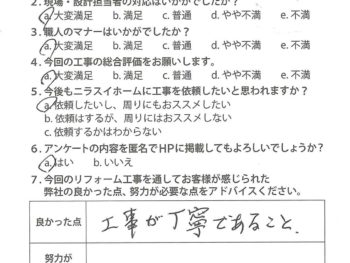 2. 現場・設計担当者の対応はいかがでしたか？
a.大変満足 b.満足 c.普通 d.やや不満 e.不満
3. 職人のマナーはいかがでしたか？
a.大変満足 b.満足 c.普通 d.やや不満 e.不満
4. 今回の工事の総合評価をお願いします。
a.大変満足 b.満足 c.普通 d.やや不満 e.不満
5. 今後もニラスイホームに工事を依頼したいと思われますか？
a.依頼したいし、周りにもおススメしたい
b.依頼はするが、周りにはおススメしない
c.依頼するかはわからない
6. アンケートの内容を匿名でHPに掲載してもよろしいでしょうか？
a.はい b.いいえ
7. 今回のリフォーム工事を通してお客様が感じられた
弊社の良かった点、努力が必要な点をアドバイスください。
良かった点 工事が丁寧であること.
努力が